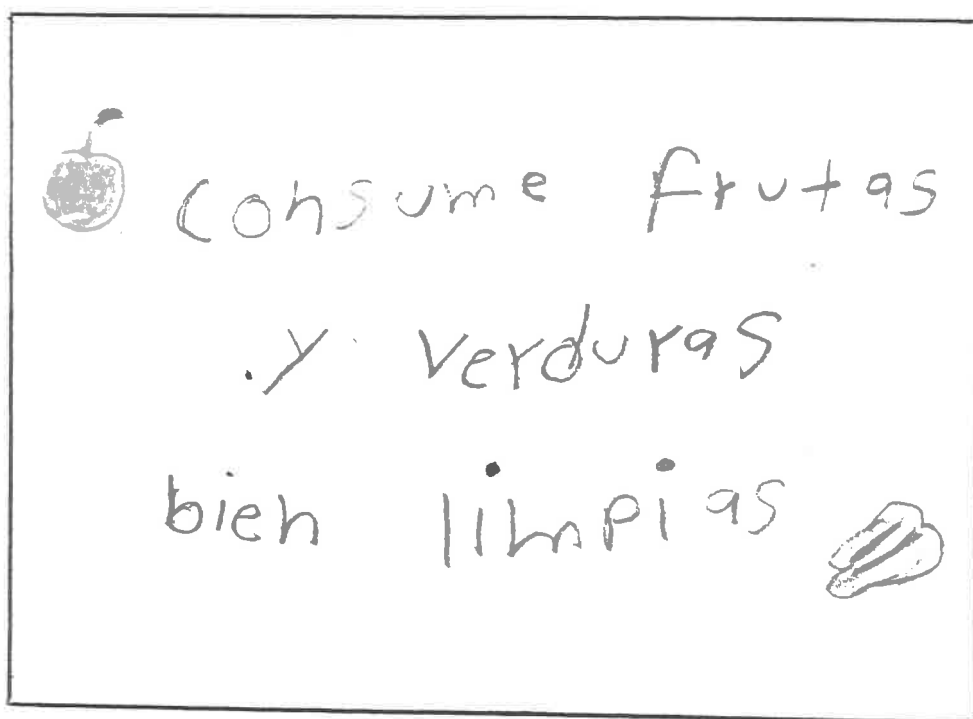 Consume frutas
y verduras
bien limpias